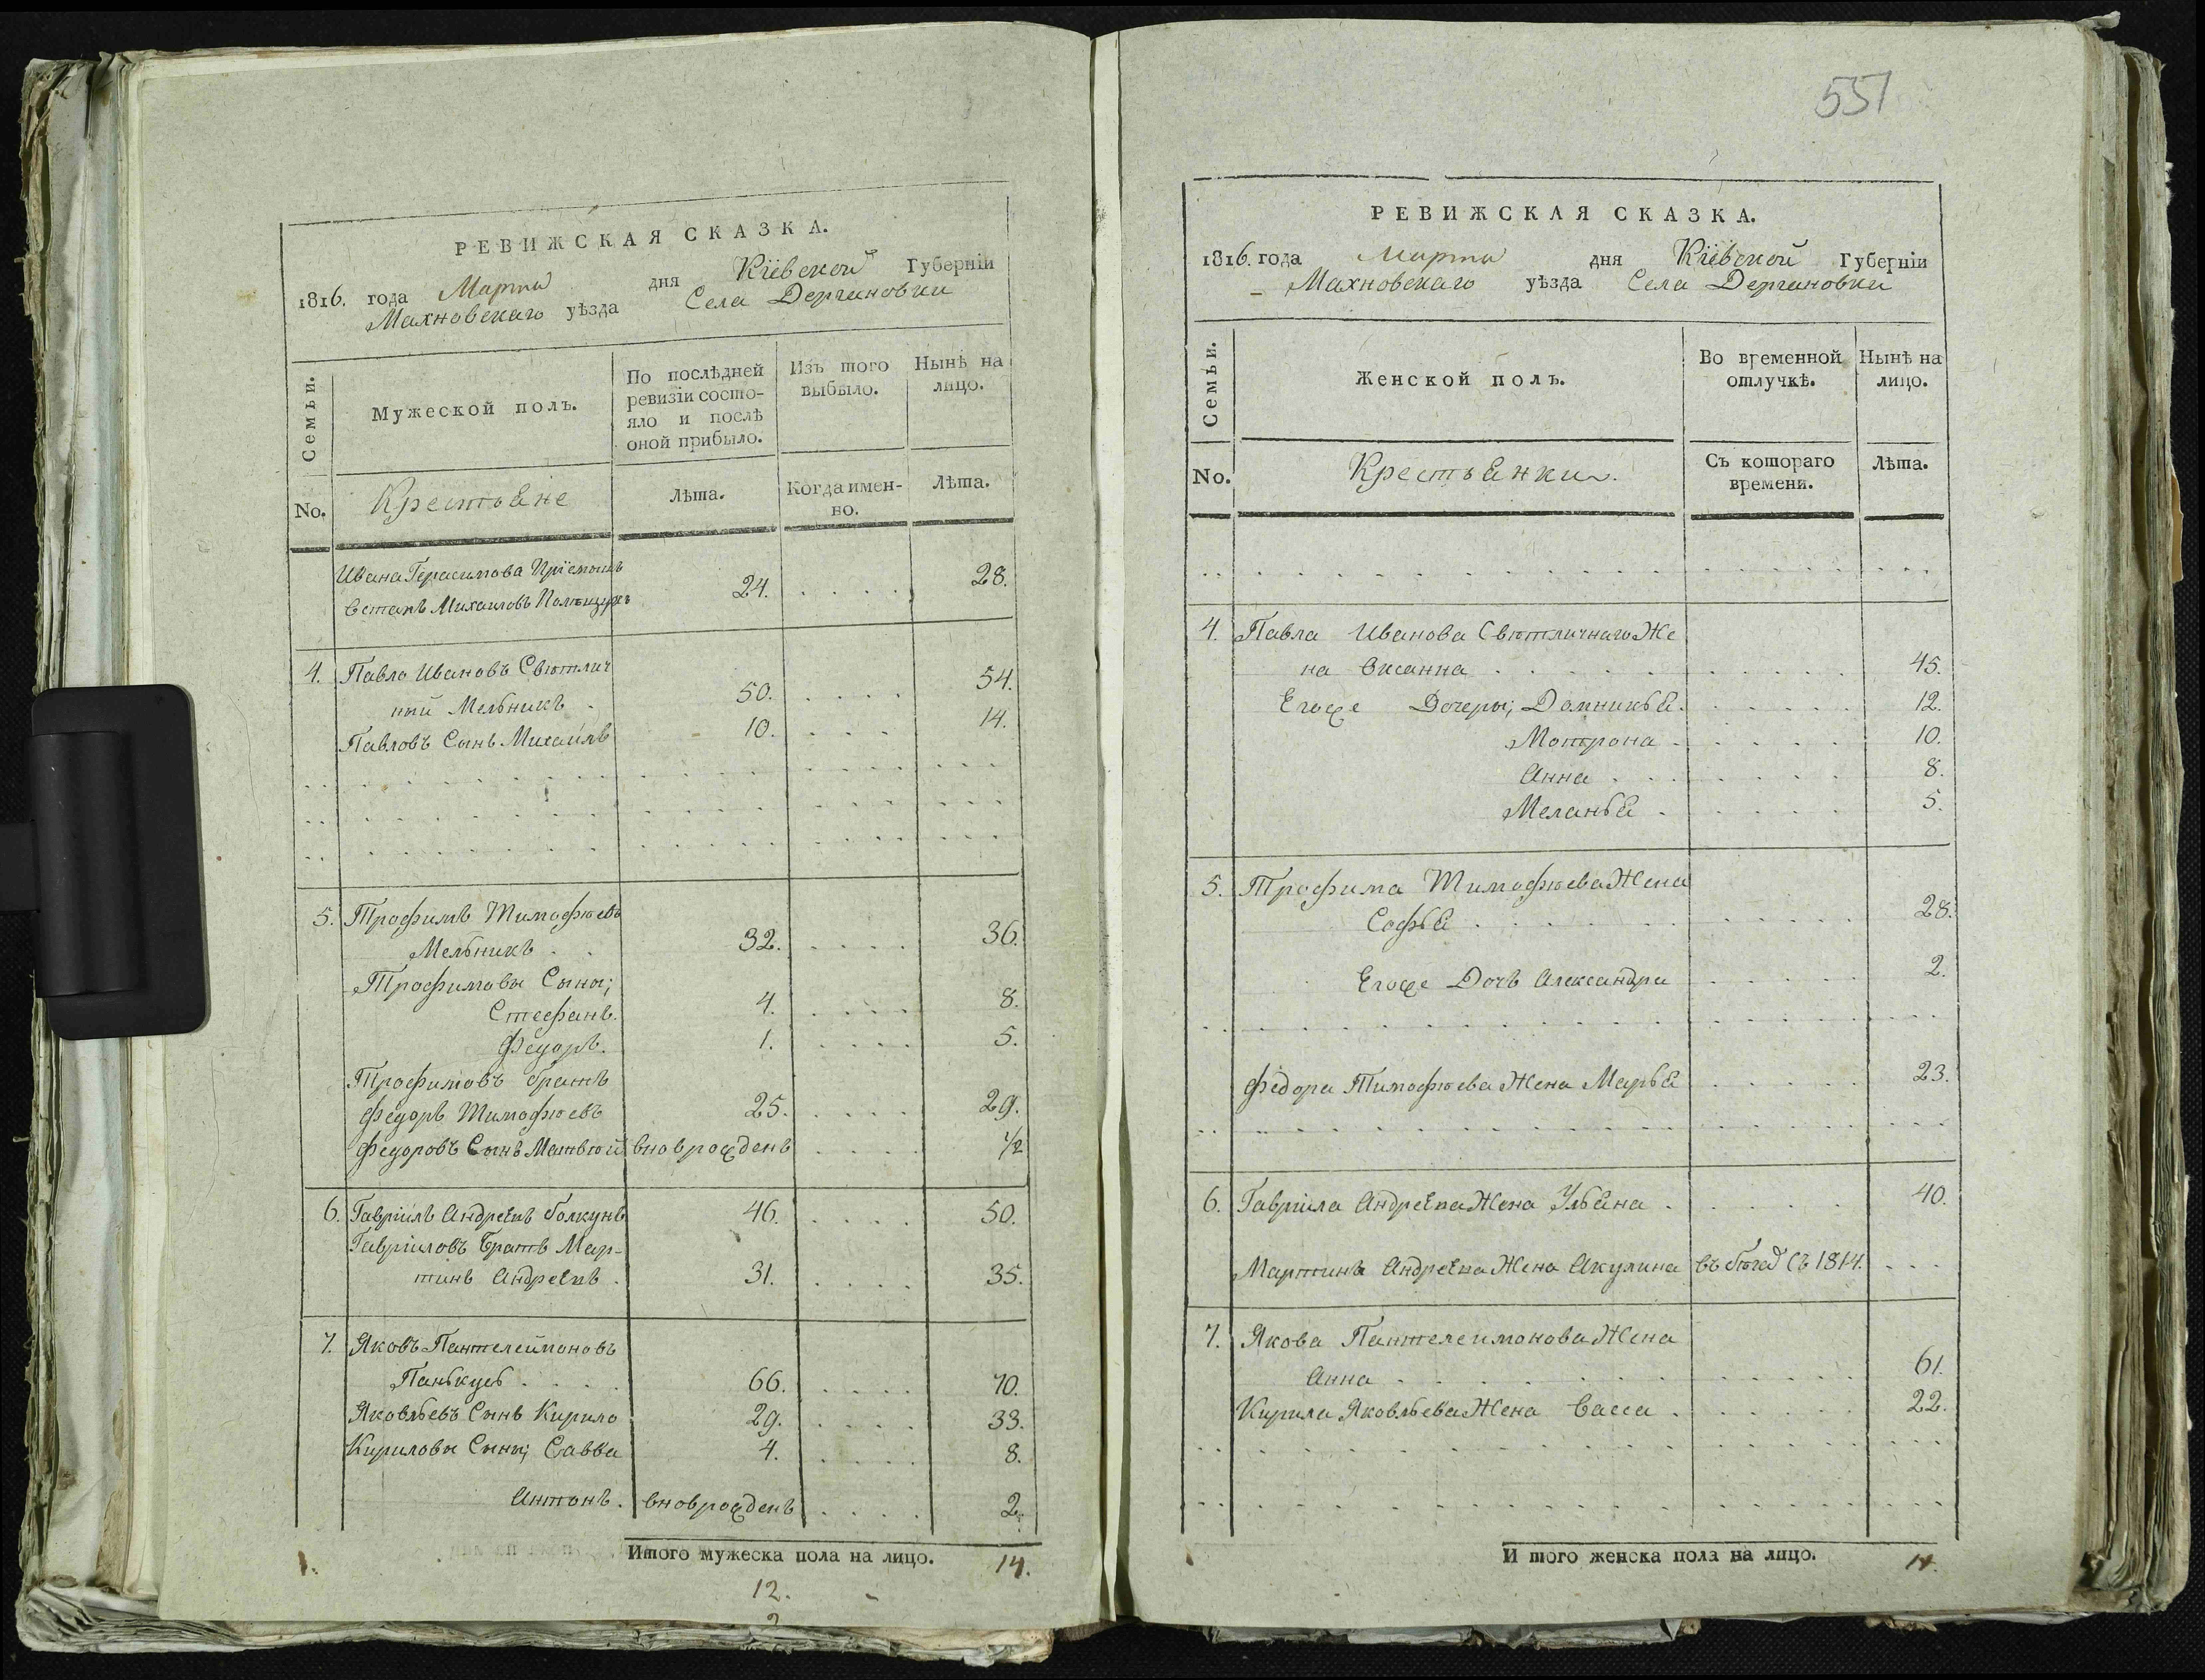 РЕВИЖСКАЯ СКАЗКА.
1816. года Марта дня Кіевской Губерніи
Махновскаго уѣзда Села Дергановки
Семьи.
Мужеской полъ.
По послѣдней ревизіи состо-
яло и послѣ
оной прибыло.
Изъ того
выбыло.
Нынѣ на
лицо.
No.
Крестьяне
Лѣта.
Когда имен-
но.
Лѣта.
Ивана Герасимова Пріемышъ
Остапъ Михаиловъ Полещукъ 24. 28.
4. Павло Ивановъ Свѣтлич
ный Мельникъ 50. 54.
Павловъ Сынъ Михаилъ 10. 14.
5. Трофимъ Тимофѣевъ
Мельникъ 32. 36.
Трофимовы Сыны;
Стефанъ. 4. 8.
Федоръ. 1. 5.
Трофимовъ братъ
Федоръ Тимофѣевъ 25. 29.
Федоровъ Сынъ Матвѣй вновьрожденъ 1/2
6. Гавріилъ Андреевъ Болкунъ 46. 50.
Гавріиловъ Братъ Мар-
тинъ Андреевъ. 31. 35.
7. Яковъ Пантелеймоновъ
Панькуев 66. 70.
Яковльевъ Сынъ Кирило 29. 33.
Кириловы Сыны; Савва 4. 8.
Антонъ. вновьрожденъ 2.
1. Итого мужеска пола на лицо. 14.
12.
2
557
РЕВИЖСКАЯ СКАЗКА.
1816. года Марта дня Кіевской Губерніи
Махновскаго уѣзда Села Дергановки
Семьи.
Женской полъ.
Во временной
отлучкѣ.
Нынѣ на
лицо.
No.
Крестьянки.
Съ котораго
времени.
Лѣта.
4. Павла Иванова Свѣтличнаго Же
на Оксанна 45.
Егоже Дочеры; Домникья. 12.
Мотрона 10.
Анна 8.
Меланья 5.
5. Трофима Тимофѣева Жена
Софья 28.
Егоже Дочь Александра 2.
Федора Тимофѣева Жена Марья 23.
6. Гавріила Андреева Жена Ульяна 40.
Мартина Андреева Жена Акулина въ бѣгах съ 1814.
7. Якова Пантелеимонова Жена
Анна 61.
Кирила Яковльева Жена Васса 22.
И того женска пола на лицо. 11.